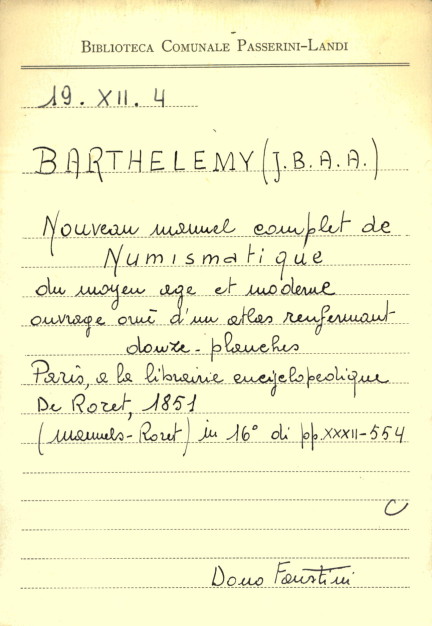 BIBLIOTECA COMUNALE PASSERINI-LANDI
19. XII. 4
BARTHELEMY (J.B.A.A.)
Nouveau manuel complet de
Numismatique
du moyen age et moderne
ouvrage orné d'un atlas renfermant
douze-planches
Paris, a la librairie encyclopedique
De Roret, 1851
(manuels-Roret) in 16° di pp.XXXII-554
C
Dono Faustini